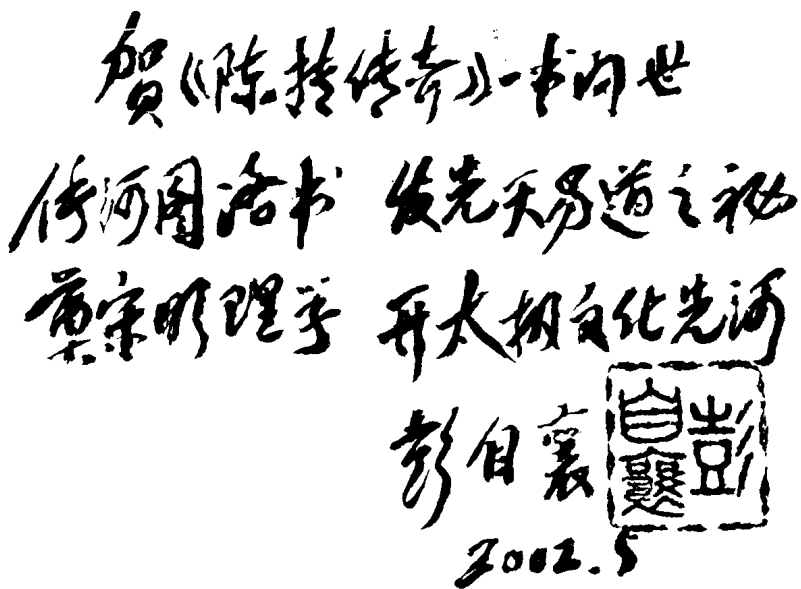 贺《陈抟传奇》一书问世
传河图洛书 发先天易道之秘
奠宋明理学 开太极文化先河
彭自襄
彭自襄
2002.5